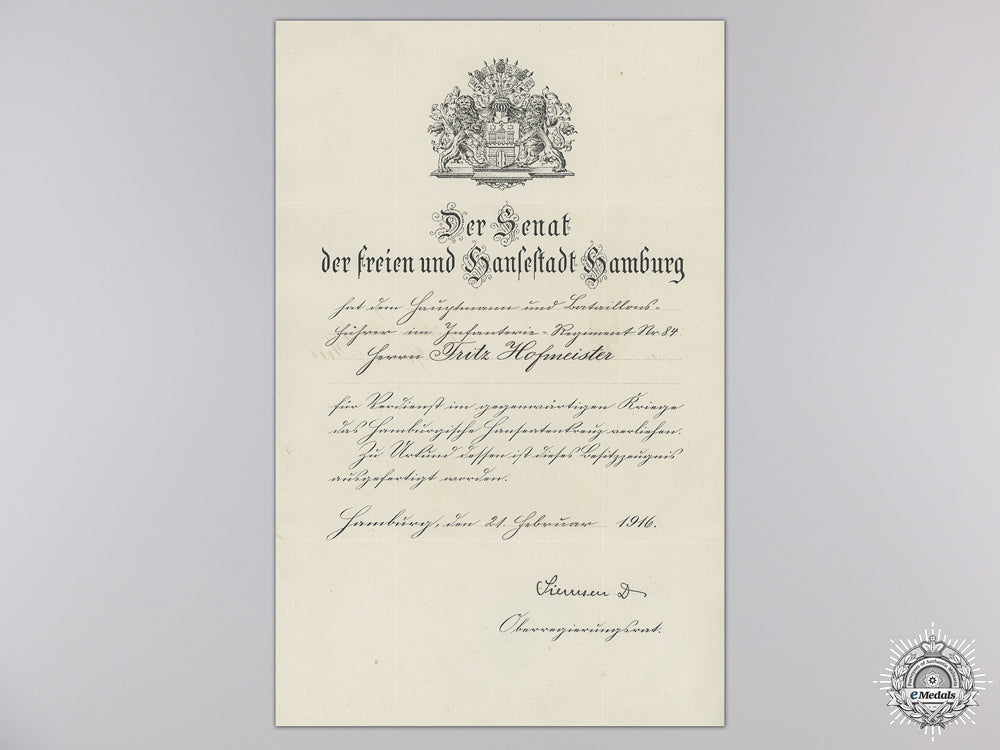 Der Senat
der freien und Hansestadt Hamburg
hat dem Hauptmann und Bataillons-
führer im Infanterie-Regiment Nr. 84
Herrn Fritz Hofmeister
für Verdienst im gegenwärtigen Kriege
das Hamburgische Hanseatenkreuz verliehen.
Zu Urkund dessen ist dieses Besitzzeugnis
ausgefertigt worden.
Hamburg, den 21. Februar 1916.
Oberregierungsrat.
eMedals